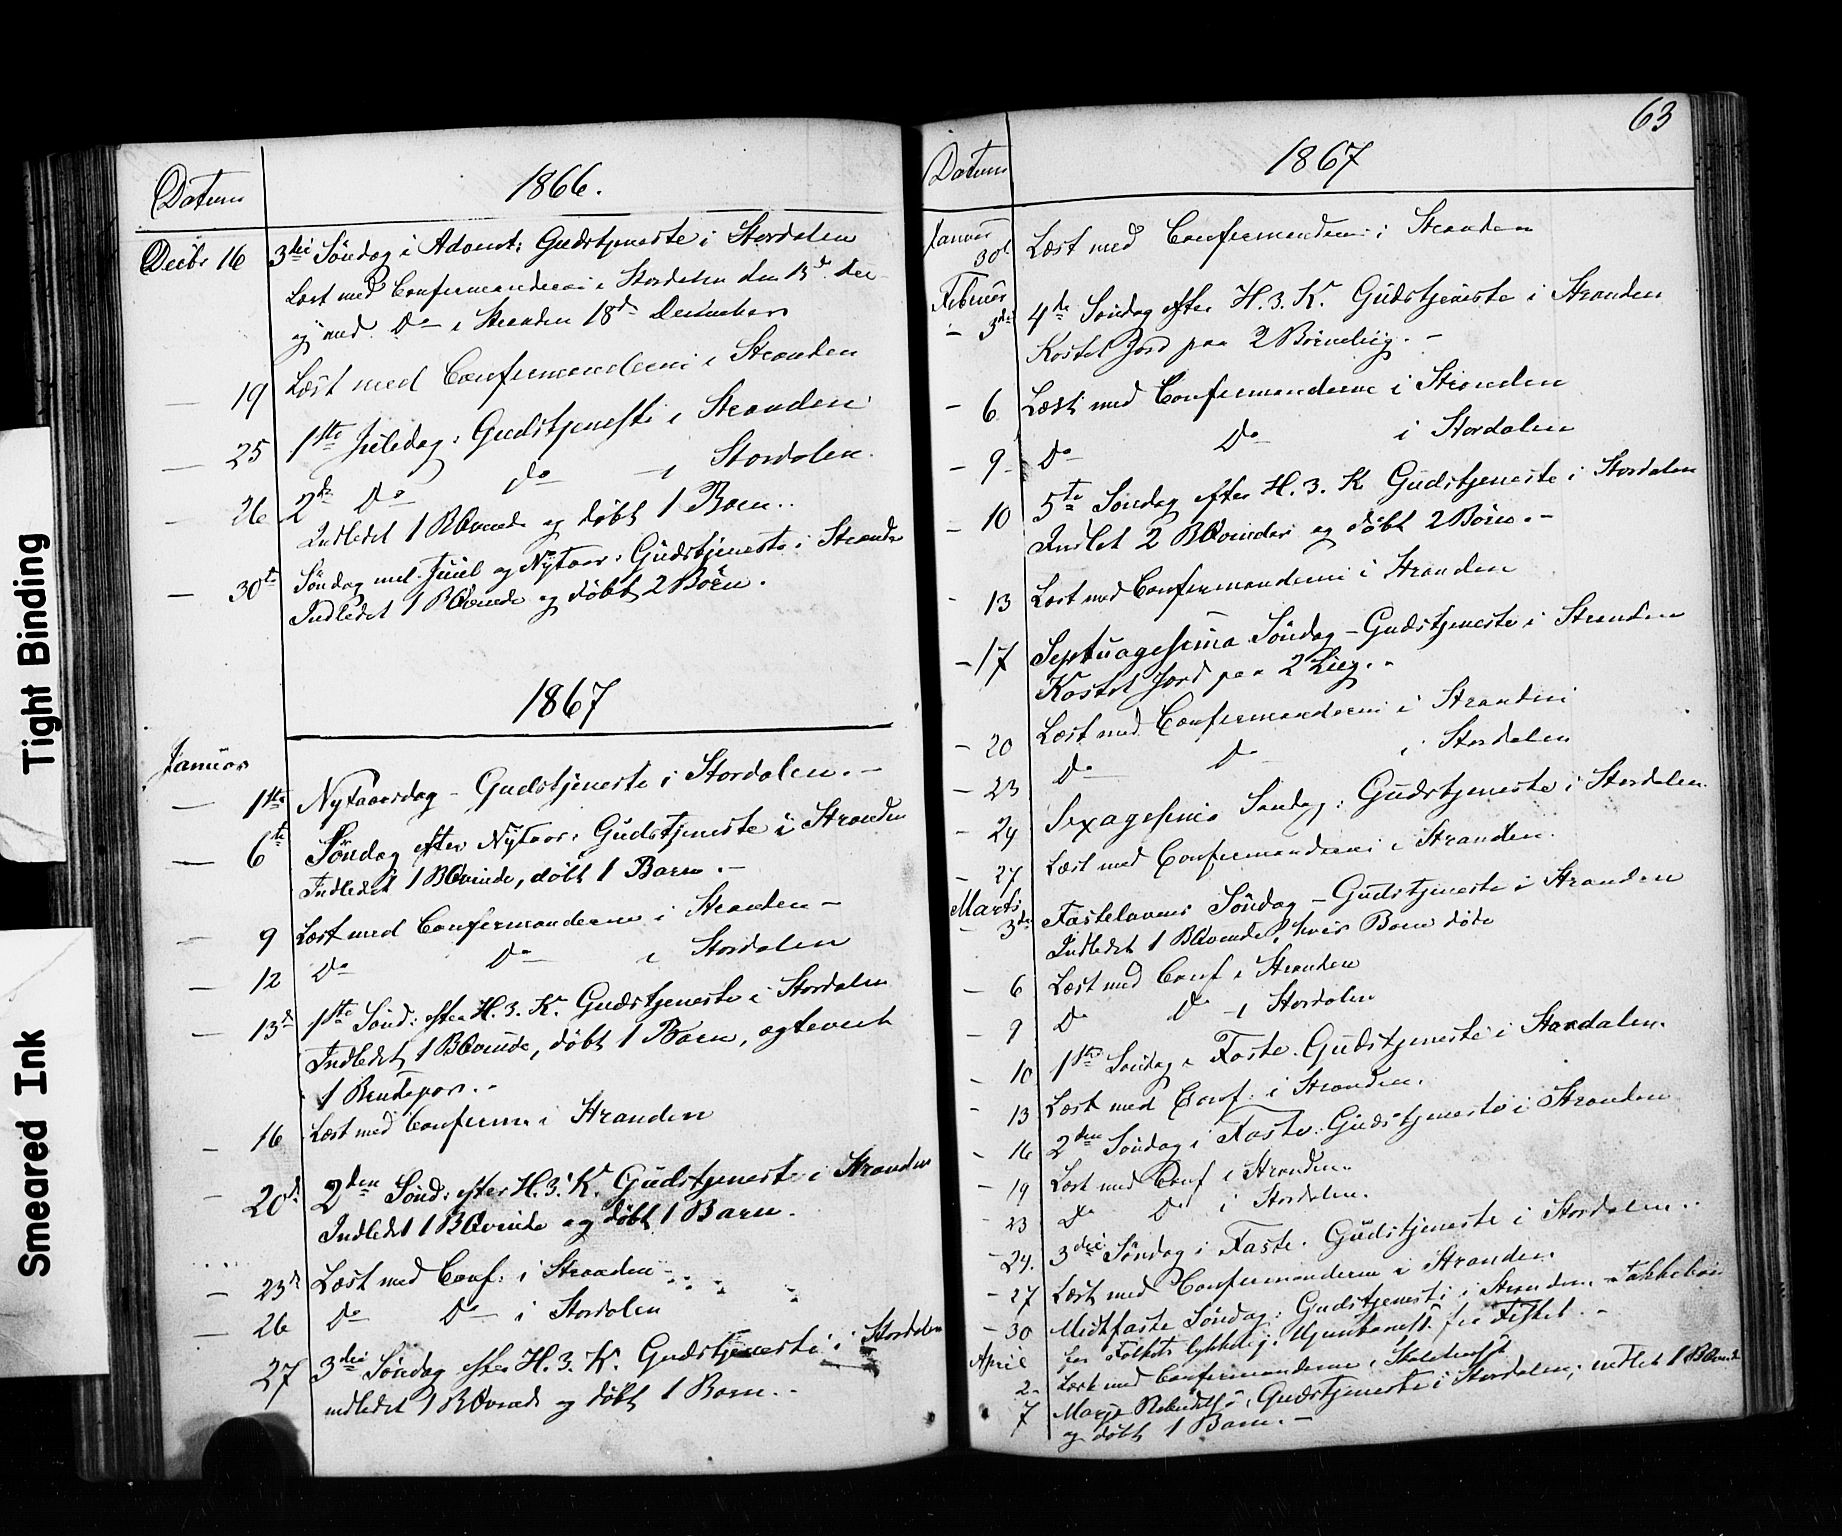 Tight Binding
Smeared Ink
Datum
1866.
Decbr 16 3die Søndag i Advent: Gudstjeneste i Stordalen
Læst med Confirmanderne i Stordalen den 15d. Dec
og med Do i Stranden 18d December
— 19 Læst med Confirmanderne i Stranden
— 25 1ste Juledag: Gudstjeneste i Stranden
— 26 2d Do do — i Stordalen.
Indledet 1 Qvinde og døbt 1 Barn..
— 30te Søndag mel. Juul og Nytaar: Gudstjeneste i Strande
Indledet 1 Qvinde og døbt 2 Børn.
1867
Januar
— 1ste Nytaarsdag – Gudstjeneste i Stordalen. –
— 6te Søndag efter Nytaar: Gudstjeneste i Stranden
Indledet 1 Qvinde, døbt 1 Barn. –
— 9 Læst med Confirmanderne i Stranden –
— 12 Do Do i Stordalen
— 13d 1ste Sønd: efter H. 3. K. Gudstjeneste i Stordalen
Indledet 1 Qvinde, døbt 1 Barn, og
1 Brudepar. –
— 16 Læst med Confirm. i Stranden
— 20d 2den Sønd: efter H. 3. K. Gudstjeneste i Stranden
Indledet 1 Qvinde og døbt 1 Barn.
— 23d Læst med Conf: i Stranden
— 26 Do Do i Stordalen
27 3die Søndag efter H. 3. K. Gudstjeneste i Stordalen
indledet 1 Qvinde og døbt 1 Barn. –
63
Datum
1867
Januar
30d Læst med Confirmanderne i Stranden
Februar
– 3die 4de Søndag efter H. 3. K. Gudstjeneste i Stranden
Kastet Jord paa 2 Børnelig. –
– 6 Læst med Confirmanderne i Stranden
– 9 Do Do i Stordalen
– 10 5te Søndag efter H. 3. K Gudstjeneste i Stordalen
Indlet 2 Qvinder og døbt 2 Børn. –
– 13 Læst med Confirmanderne i Stranden
– 17 Septuagesima Søndag – Gudstjeneste i Stranden
Kastet Jord paa 2 Liig. –
– 20 Læst med Confirmanderne i Stranden
– 23 Do Do i Stordalen
– 24 Sexagesima Søndag: Gudstjeneste i Stordalen.
– 27 Læst med Confirmanderne i Stranden.
Marts
– 3die Fastelavens Søndag – Gudstjeneste i Stranden
Indledet 1 Qvinde, hvis Barn døde
– 6 Læst med Conf i Stranden
– 9 Do Do – i Stordalen
– 10 1ste Søndag i Faste. Gudstjeneste i Stordalen.
– 13 Læst med Conf: i Stranden.
– 16 2den Søndag i Faste: Gudstjeneste i Stranden
– 19 Læst med Conf i Stranden.
– 23 Do Do i Stordalen.
– 24. 3die Søndag i Faste. Gudstjeneste i Stordalen. .
– 27 Læst med Confirmanderne i Stranden.
– 30 Midtfaste Søndag: Gudstjeneste i Stranden. – Takkebøn
for Folkets lykkelige Hjemkomst fra Fisket. –
April
2– Læst med Confirmanderne i
7 Mariæ Gudstjeneste i Stordalen; indlet 1 Qvinde
og døbt 1 Barn. –